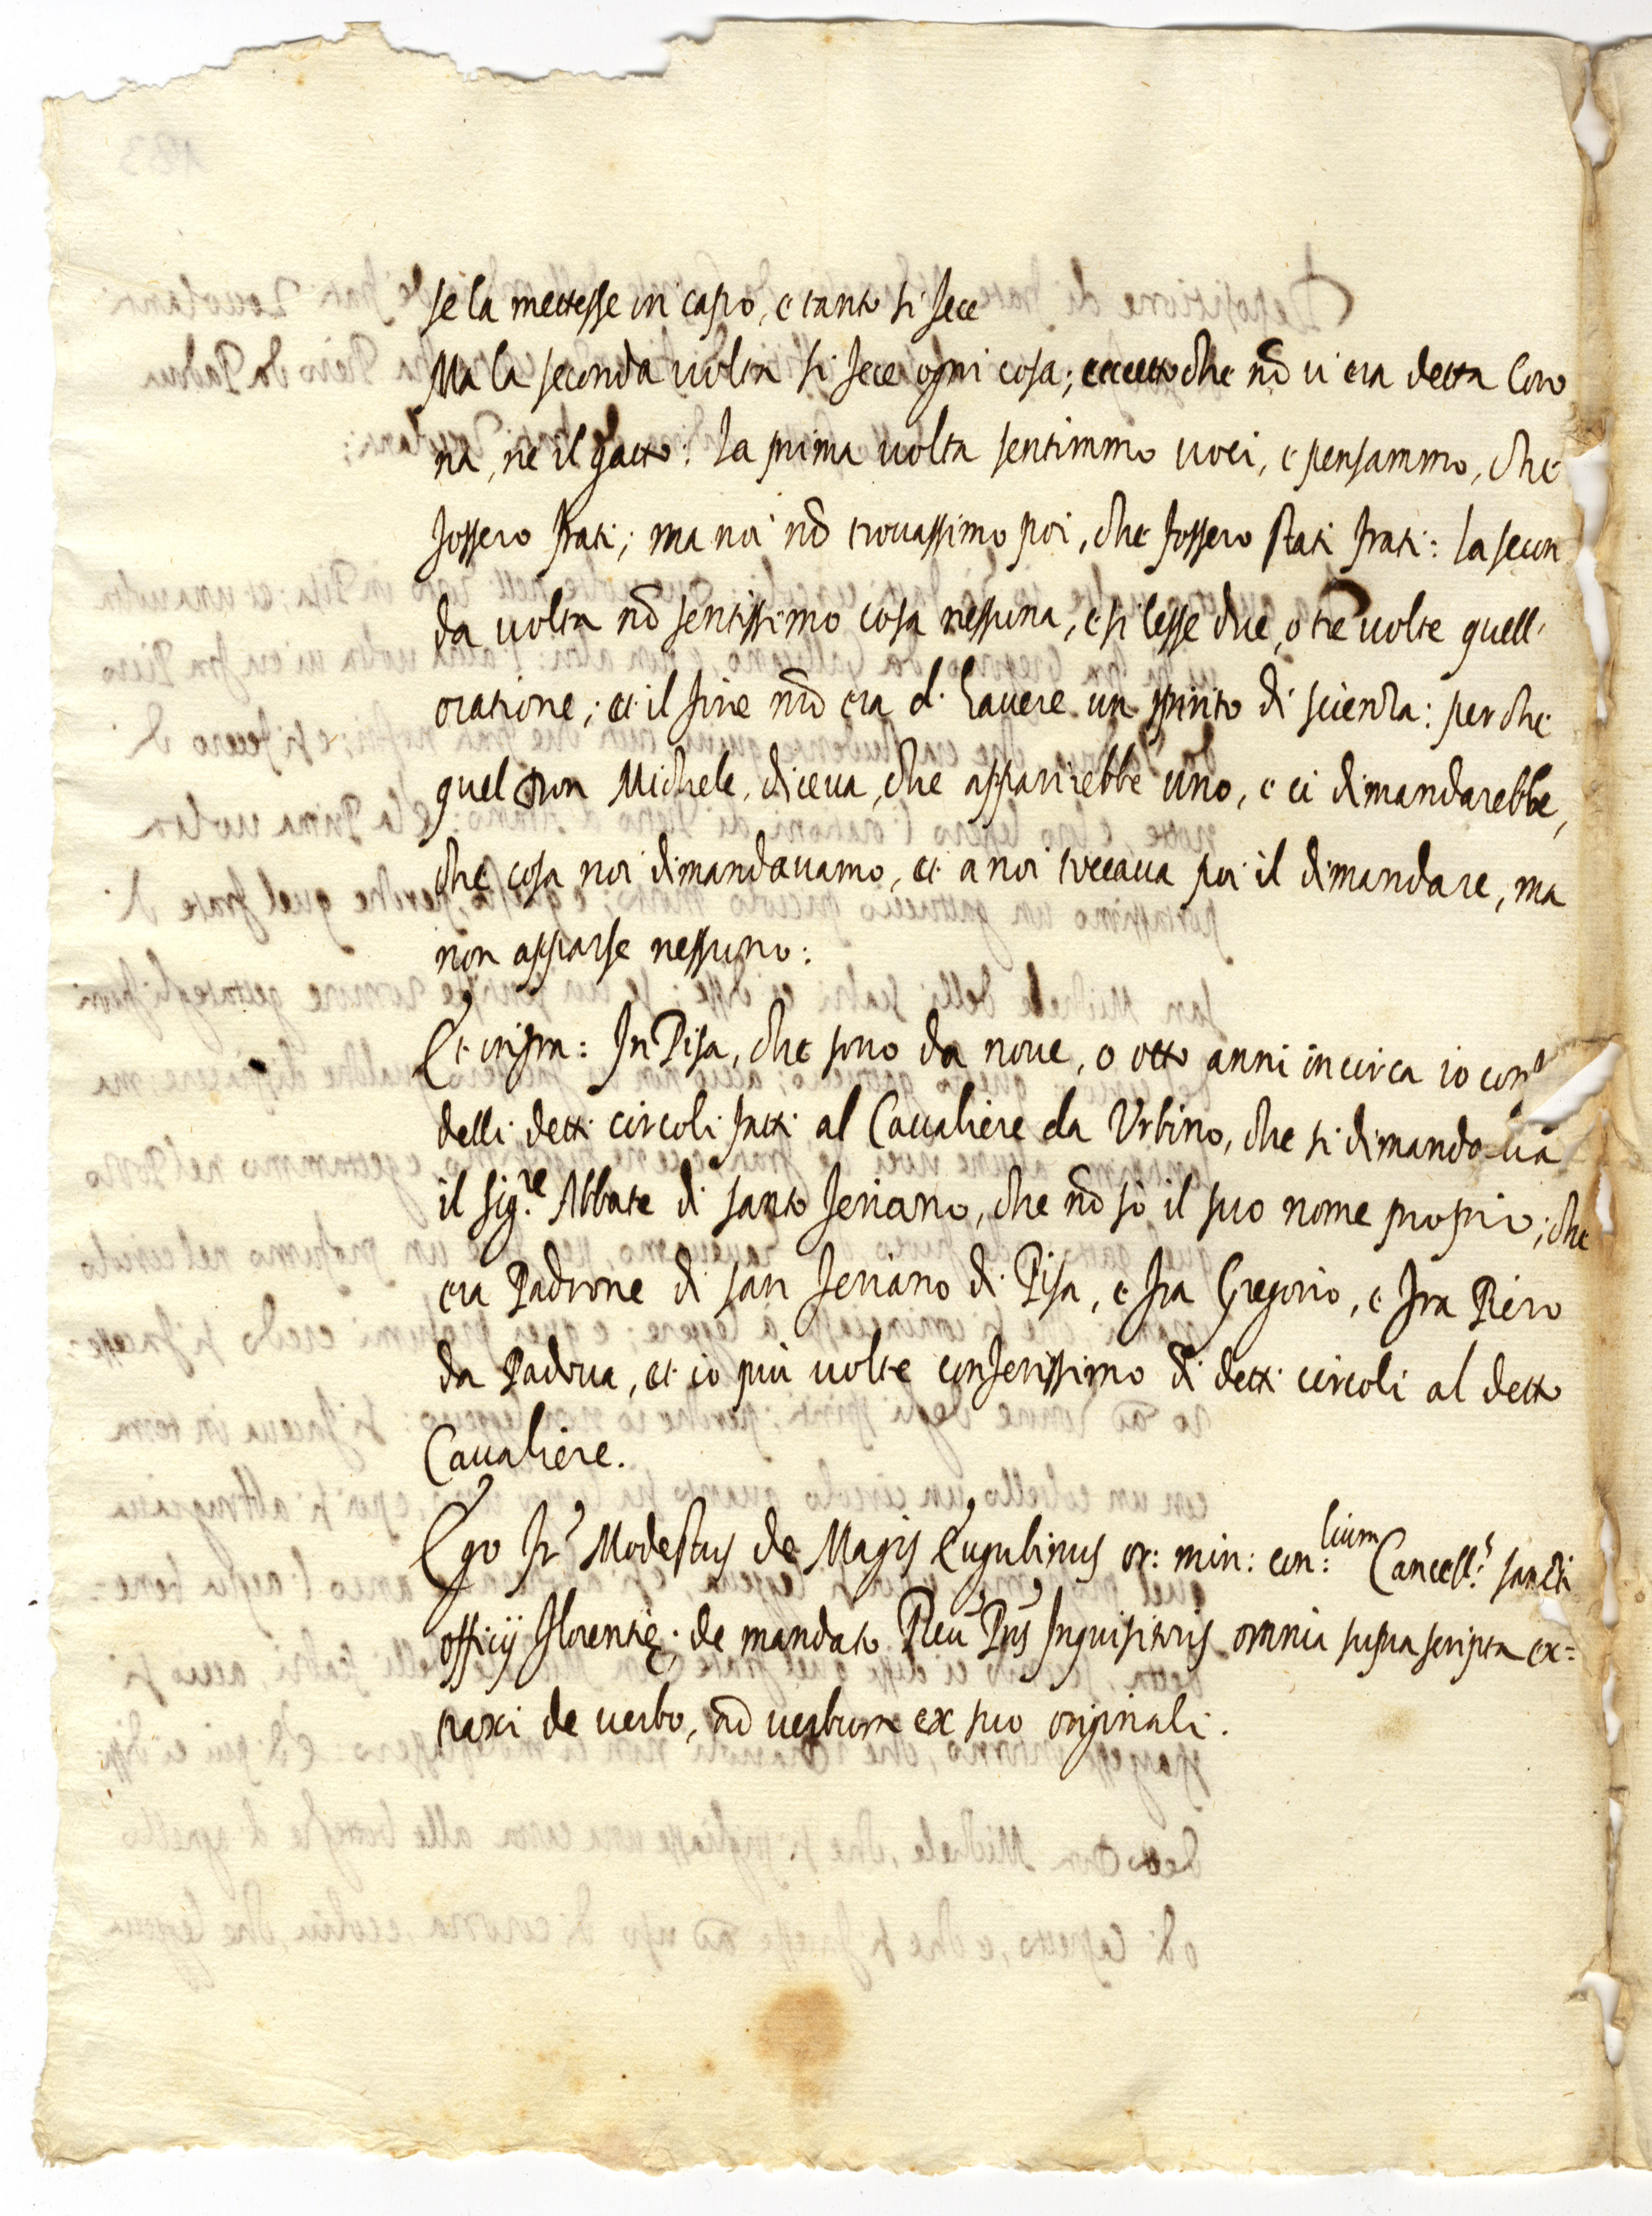 se la mettesse in capo, e tanto si fece
Ma la seconda uolta si fece ogni cosa; eccetto che nō ui era detta Coro
na, ne il gatto: la prima uolta sentimmo uoci, e pensammo, che
fossero frati; ma noi nō trouassimo poi, che fossero stati frati: la secon
da uolta nō sentissimo cosa nessuna, e si lesse due, o tre uolte quell'
oratione; et il fine nrō era d' hauere un spirito di scienza: perche
quel Don Michele, diceua, che apparirebbe uno, e ci dimandarebbe,
che cosa noi dimandauamo, et a noi toccaua poi il dimandare, ma
non apparse nessuno:
Et infra: In Pisa, che sono da noue, o otto anni incirca io
delli detti circoli fatti al Caualiere da Vrbino, che si dimandaua
il Sig.re Abbate di santo Seriano, che nō sò il suo nome proprio; che
era Padrone di san Seriano di Pisa, e fra Gregorio, e fra Piero
da Padua, et io più uolte conferissimo di detti circoli al detto
Caualiere.
Ego fr. Modestus de Magis Eugubinus or: min: con:lium Cancell.s sancti
officij Florentię; de mandato Reu Pris Inquisitoris omnia suprascripta ex=
traxi de uerbo, ad uerbum ex suo originali.